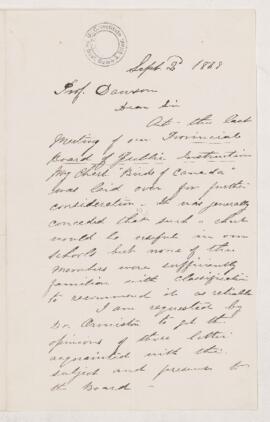 Sept 2d 1868
Prof. Dawson
Dear Sir
At the last
Meeting of our Provincial
Board of Public Instruction
My Chart "Birds of Canada"
was laid over for further
consideration. It was generally
conceded that such a chart
would be useful in our
schools but none of the
Members were sufficiently
familiar with classification
to recommend it as reliable
I am requested by
Dr. Ormiston to get the
opinions of those better
acquainted with the
subject and present to
the Board -